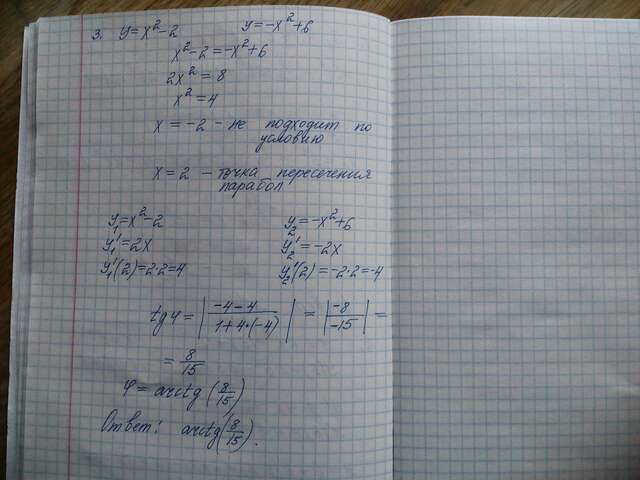 3. y=x²-2 y=-x²+6
x²-2=-x²+6
2x²=8
x²=4
x=-2 - не подходит по
условию
x=2 - точка пересечения
парабол
y₁=x²-2 y₂=-x²+6
y₁'=2x y₂'=-2x
y₁'(2)=2·2=4 y₂'(2)=-2·2=-4
tg φ = |(-4-4)/(1+4·(-4))| = |(-8)/(-15)| =
= 8/15
φ = arctg (8/15)
Ответ: arctg(8/15).